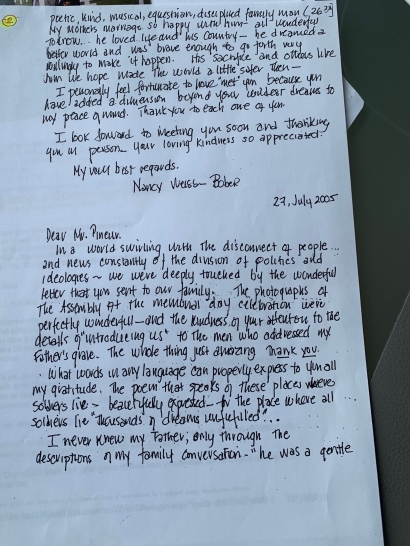 2
poetic, kind, musical, equestrian, disciplined family man (26 yrs)
My Mothers marriage so happy with him – all wonderful
to know... he loved life and his country – he dreamed a
better world and was brave enough to go forth very
willingly to make it happen. His sacrifice and others like
him we hope made the world a little safer then –
I personally feel fortunate to have "met" you because you
have added a dimension beyond your wildest dreams to
my peace of mind. Thank you to each one of you
I look forward to meeting you soon and thanking
you in person – your loving kindness so appreciated.
My very best regards.
Nancy Weiss Bober
27, July 2005
Dear Mr. Pineur.
In a world swirling with the disconnect of people...
and news constantly of the division of politics and
ideologies ~ we were deeply touched by the wonderful
letter that you sent to our family. The photographs of
The Assembly at the memorial day celebration were
perfectly wonderful – and the kindness of your attention to the
details of "introducing us" to the men who addressed my
Father's grave. The whole thing just amazing Thank you.
. What words in any language can properly express to you all
my gratitude. The poem that speaks of these places where
soldiers lie – beautifully expressed – in the place where all
soldiers lie "thousands of dreams unfulfilled"...
I never knew my Father, only through the
descriptions of my family conversation – "he was a gentle